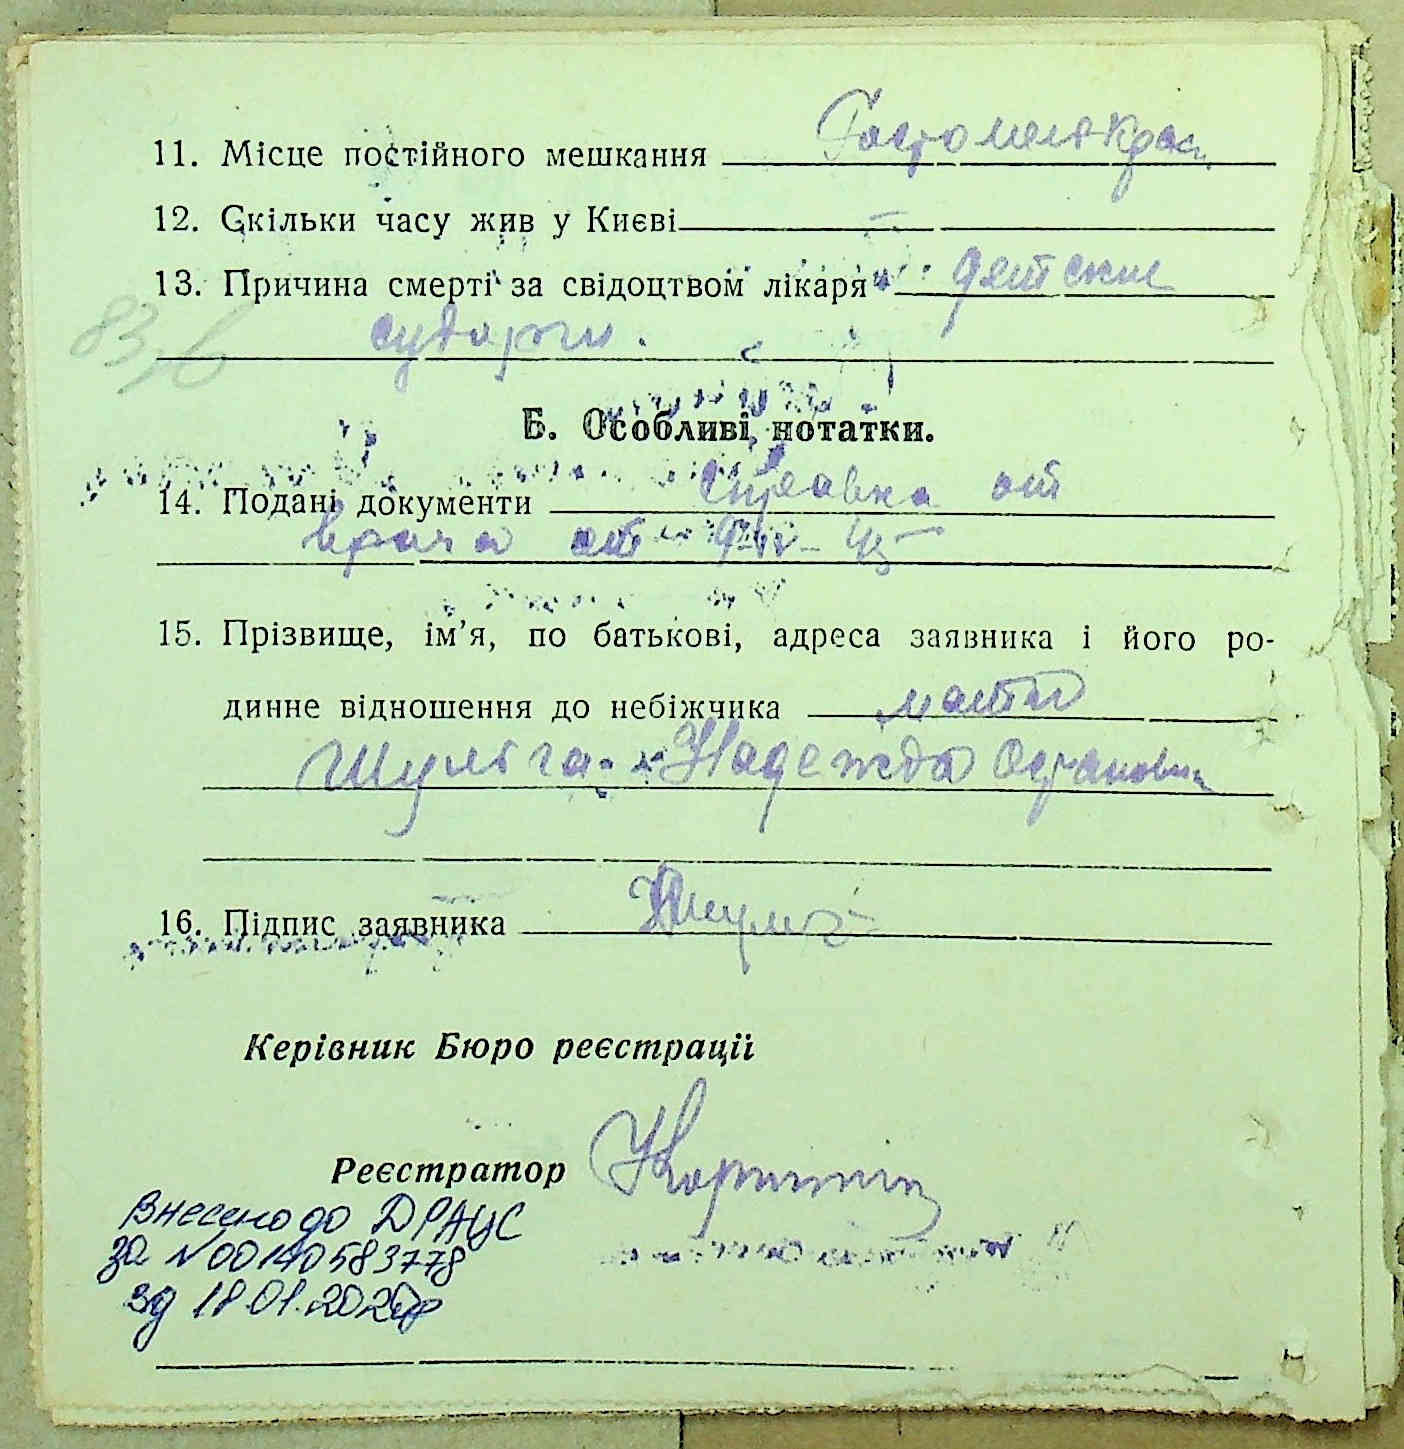 11. Місце постійного мешкання Гостомель Крас.
12. Скільки часу жив у Києві —
13. Причина смерті за свідоцтвом лікаря детские
судороги.
83,6
Б. Особливі нотатки.
14. Подані документи справка от
врача от 9-IV-43
15. Прізвище, ім’я, по батькові, адреса заявника і його ро-
динне відношення до небіжчика мать
Шульга Надежда Остаповн
16. Підпис заявника НШульг
Керівник Бюро реєстрації
Реєстратор
Внесено до ДРАЦС
за №00140583778
від 18.01.202